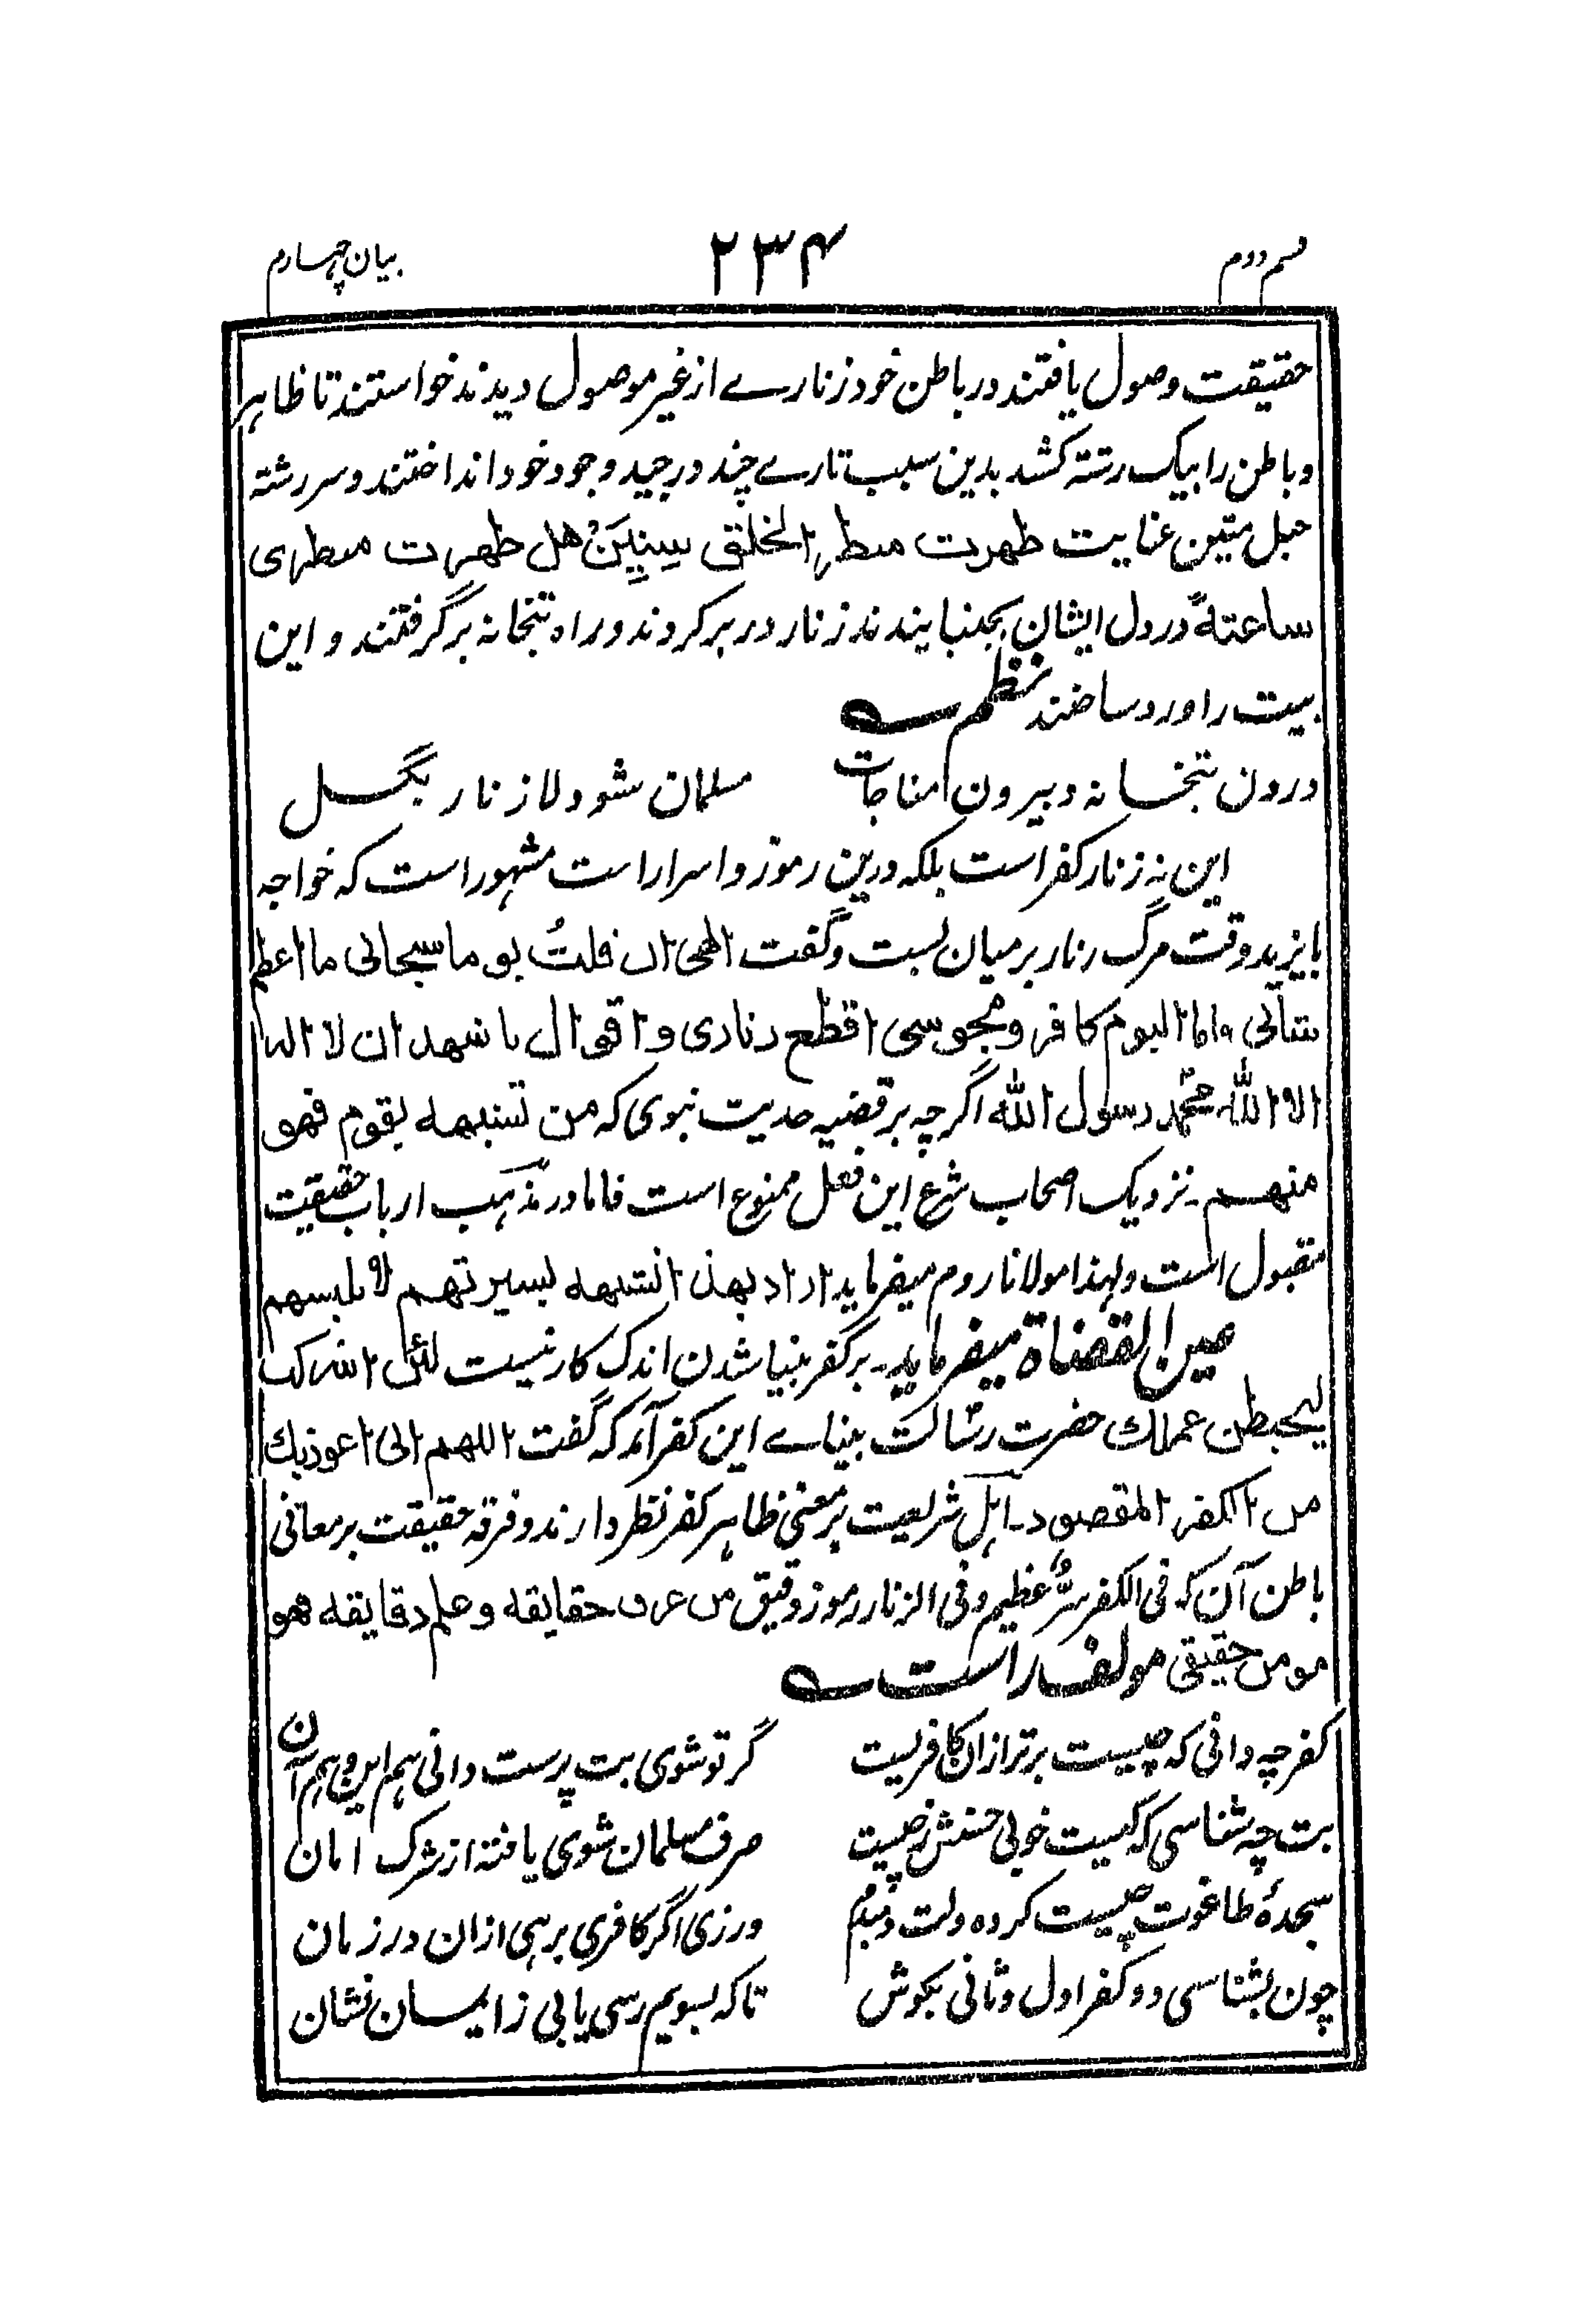 قسم دوم ۲۳۴ بیان چہارم
حقیقت وصول یافتند در باطن خود زنارے از غیر موصول دیدند خواستند تا ظاہر
و باطن را بیک رشتہ کشد بدین سبب تارے چند در جید وجود خود انداختند و سر رشتہ
حبل متین عنایت طهرت منظر الخلق سِنِیْنَ هل طهرت منظری
ساعتةً در دل ایشان بجنبانیدند زنار در بر کردند و راه بتخانہ بر گرفتند و این
بیت را ورد ساختند نظم
درون بتخانہ و بیرون مناجات مسلمان شو دلا زنار بگسل
این نہ زنار کفر است بلکہ درین رموز و اسرار است مشہور است کہ خواجہ
بایزید وقت مرگ زنار بر میان بست و گفت الهی ان قلتُ یوما سبحانی ما اعظم
شانی وانا الیوم کافر و مجوسی اقطع زناری و اقوال باشهد ان لا الہ
الا الله محمد رسول الله اگرچہ بر قضیہ حدیث نبوی کہ من تشبهه بقوم فهو
منهم ۔ نزدیک اصحاب شرع این فعل ممنوع است فاما در مذہب ارباب حقیقت
مقبول است ولہذا مولانا روم میفرماید اراد بهذا تشبهه بسیرتهم لا بلبسهم
عین القضاة میفرماید ۔ بر کفر بینا شدن اندک کار نیست لئن اشرکت
لیحبطن عملك حضرت رسالت بیناے این کفر آمد کہ گفت اللهم انی اعوذ بك
من الکفر المقصود ۔ اہل شریعت بر معنی ظاہر کفر نظر دارند و فرقہ حقیقت بر معانی
باطن آن کہ فی الکفر سرٌ عظیم و فی الزنار رموز دقیق من عرف حقایقه و علم دقایقه فهو
مومن حقیقی مولف راست
کفر چہ دانی کہ چیست برتر ازان کافریست گر تو شوی بت پرست دانی ہم این و ہم آن
بت چہ شناسی کہ کیست خوبی حسنش ز چیست صرف مسلمان شوی یافتہ از شرک امان
سجدۂ طاغوت چیست کرده ولت دمبدم ورزی اگر کافری برہی ازان در زمان
چون بشناسی دو کفر اول و ثانی بکوش تا کہ بسویم رسی یابی ز ایمان نشان